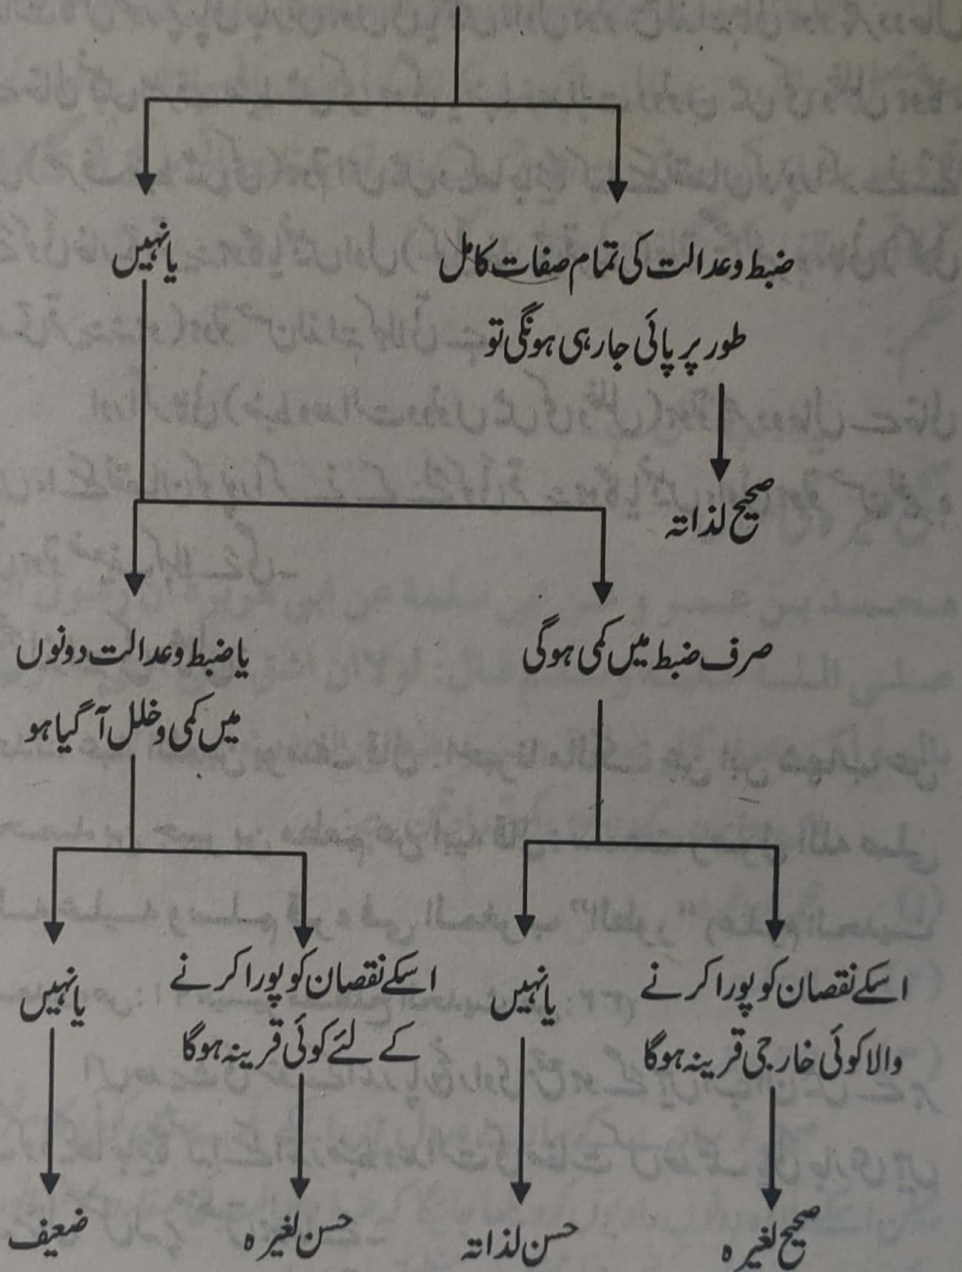 ضبط وعدالت کی تمام صفات کامل
طور پر پائی جارہی ہونگی تو
یا نہیں
صحیح لذاتہ
صرف ضبط میں کمی ہوگی
یا ضبط وعدالت دونوں
میں کمی وخلل آ گیا ہو
اسکے نقصان کو پورا کرنے
والا کوئی خارجی قرینہ ہوگا
یا نہیں
اسکے نقصان کو پورا کرنے
کے لئے کوئی قرینہ ہوگا
یا نہیں
صحیح لغیرہ
حسن لذاتہ
حسن لغیرہ
ضعیف